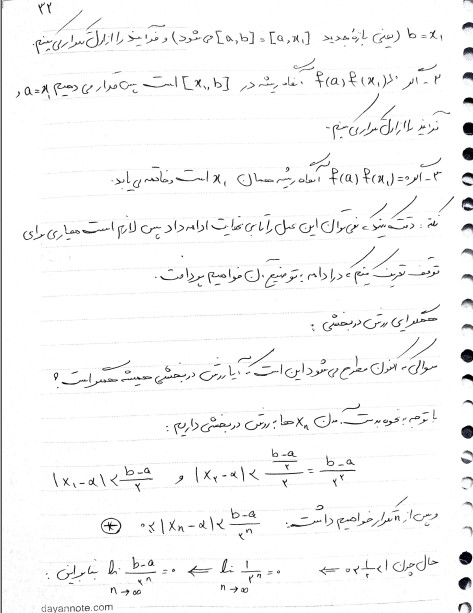 ۳۲
b = x₁ (یعنی بازه جدید [a,b] = [a,x₁] می شود) و فرآیند را از اول تکرار می کنیم.
۲- اگر f(a) f(x₁) > 0 آنگاه ریشه در [x₁, b] است پس قرار می دهیم a = x₁ و
فرآیند را از اول تکرار می کنیم.
۳- اگر f(a) f(x₁) = 0 آنگاه ریشه همان x₁ است و خاتمه می یابد.
نکته: دقت کنید که نمی توان این عمل را تا بی نهایت ادامه داد پس لازم است معیاری برای
توقف تعریف کنیم که در ادامه به توضیح آن خواهیم پرداخت.
همگرایی روش دوبخشی:
سوالی که اکنون مطرح می شود این است که آیا روش دوبخشی همیشه همگراست؟
با توجه به نحوه بدست آمدن xₙ ها به روش دوبخشی داریم:
|x₁-α| < (b-a)/۲ و |x₂-α| < ((b-a)/۲)/۲ = (b-a)/۲²
و پس از n تکرار خواهیم داشت: 0 ≤ |xₙ-α| < (b-a)/۲ⁿ (*)
حال چون 0 < ۱/۲ < ۱ ⇐ lim n→∞ ۱/۲ⁿ = 0 ⇐ lim n→∞ (b-a)/۲ⁿ = 0 بنابراین:
dayannote.com